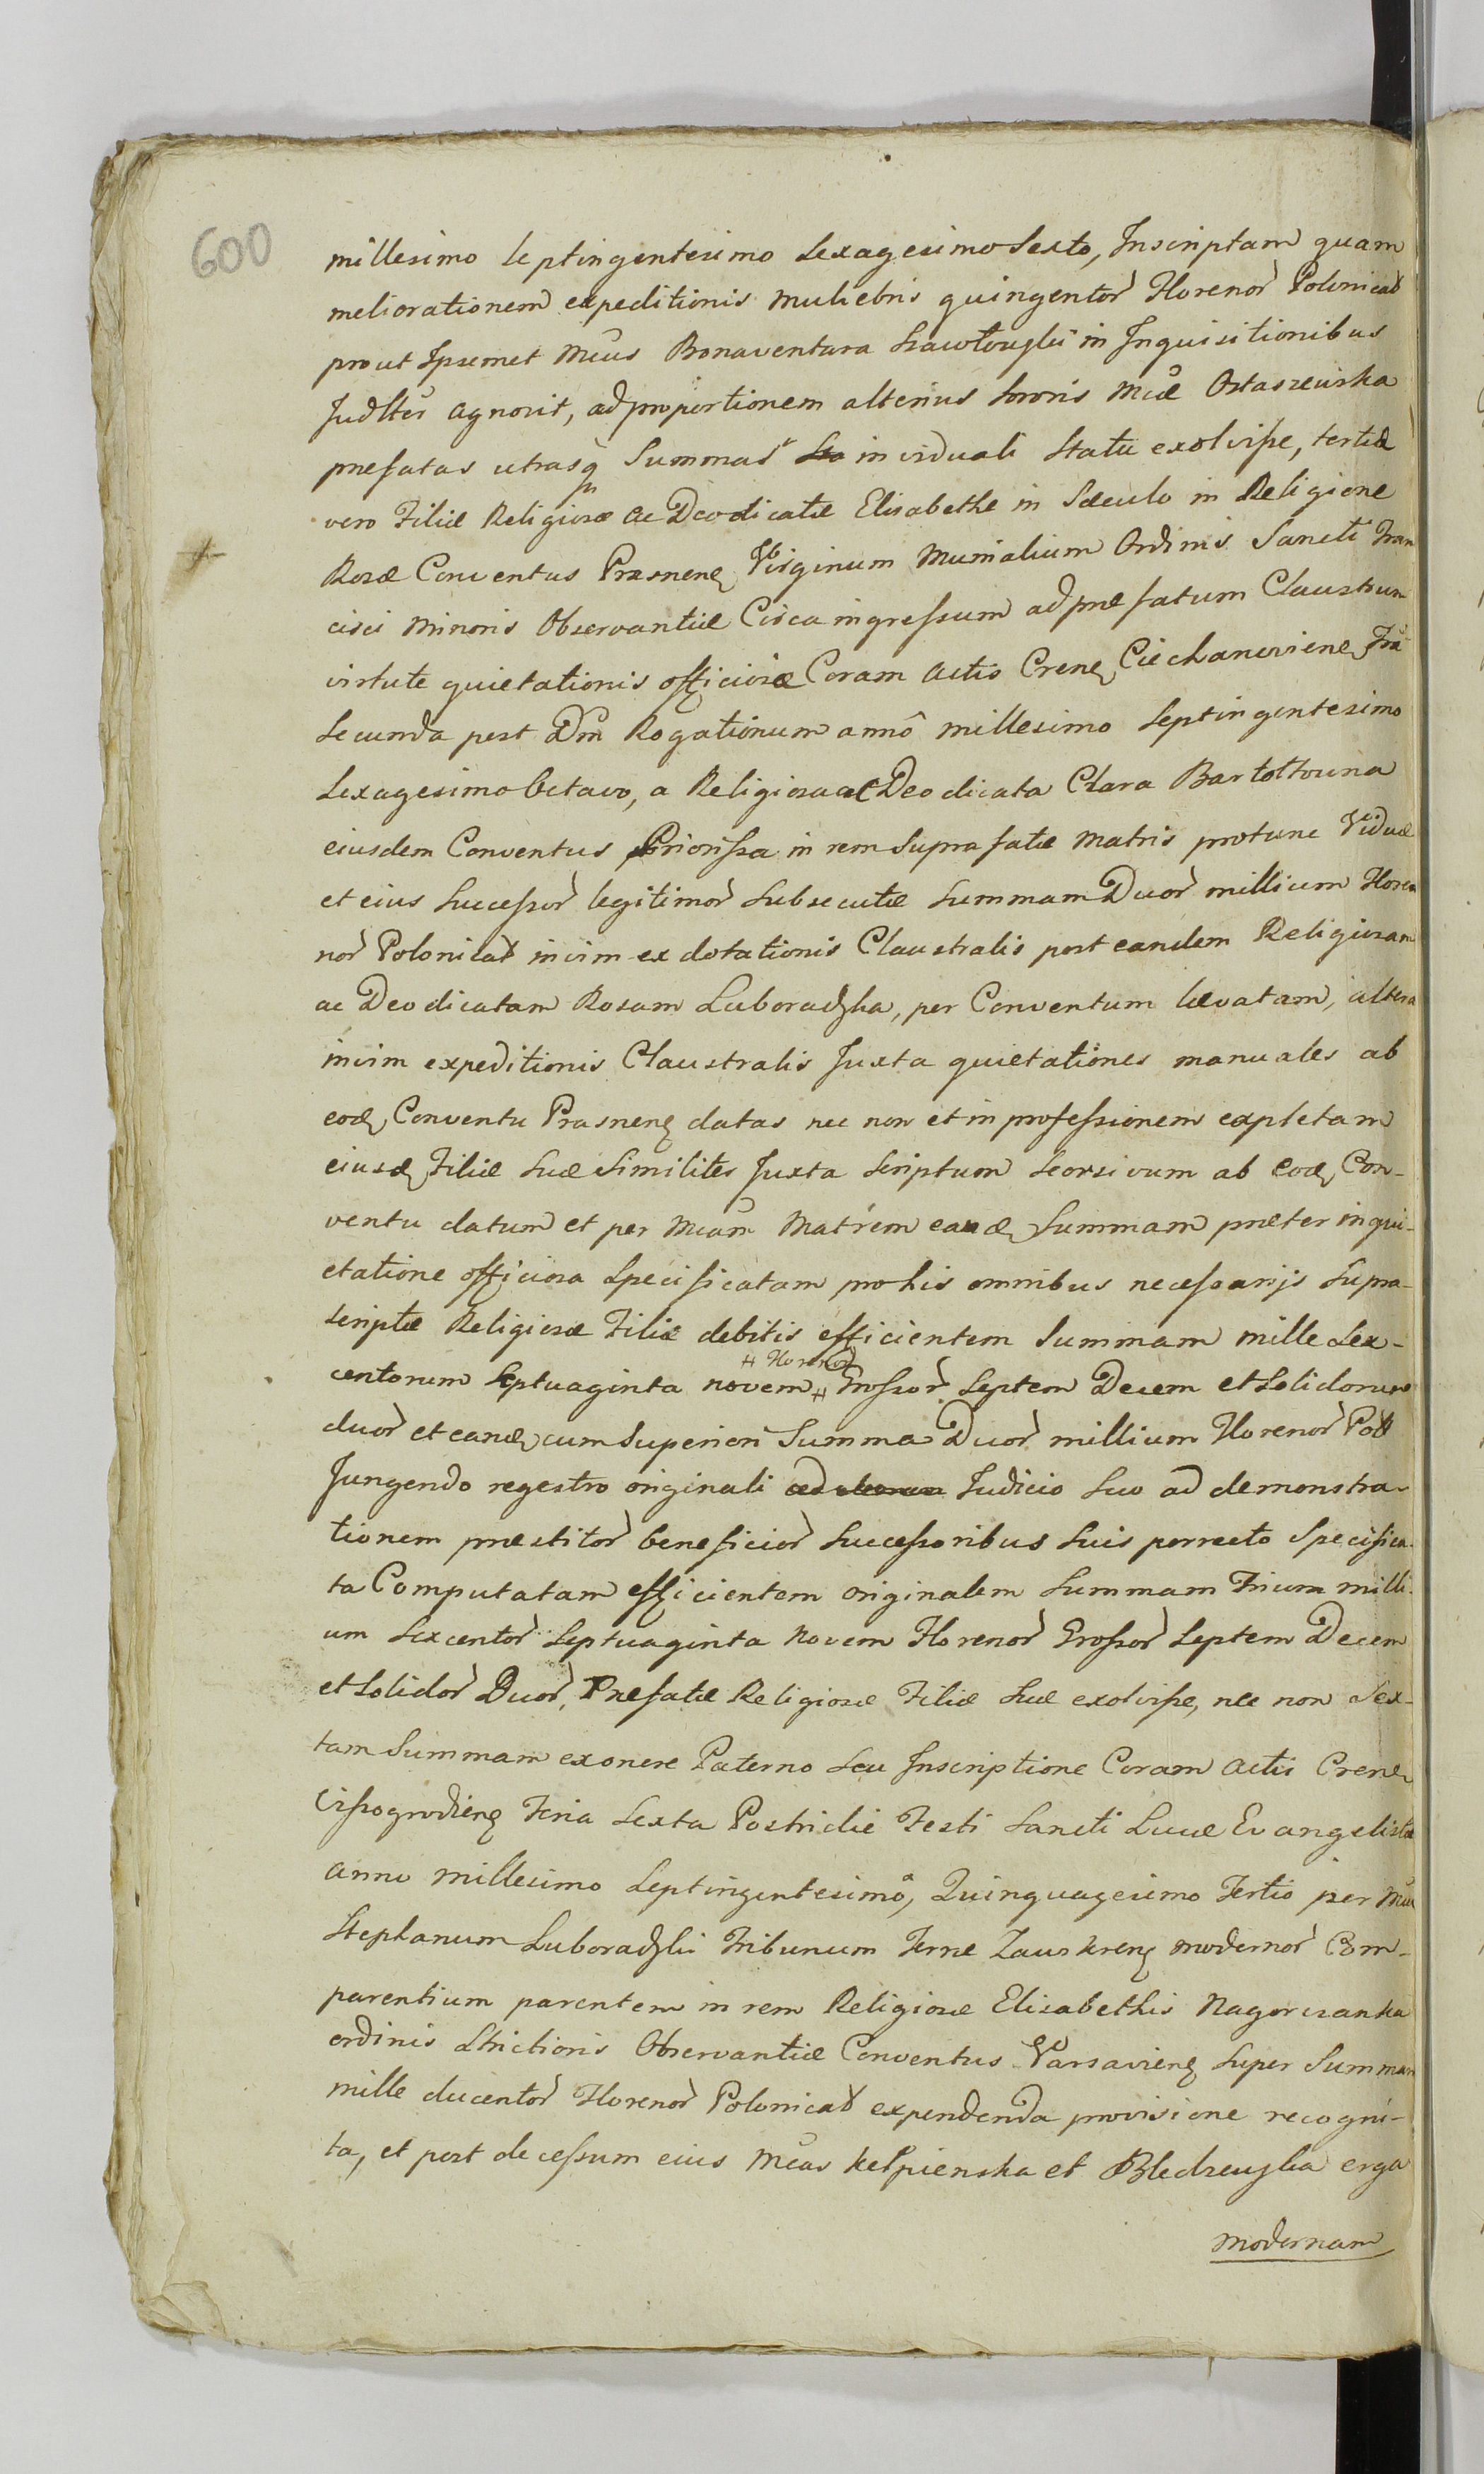 600
millesimo septingentesimo Sexagesimo Sexto, Inscriptam quam
meliorationem expeditionis muliebris quingentor Florenor Polonical
prout Ipsemet Mcus Bonaventura in Inquisitionibus
Judlter agnovit, ad proportionem alterius Sororis Mcæ Ostaszewska
prefatas utrasq Summas in viduali Statu exolvisse, tertiæ
vero Filiæ Religiosæ ac Deo dicatæ Elisabethe in Sæculo in Religione
Rosæ Conventus Prasnen Virginum Munialium Ordinis Sancti Fran
cisci Minoris Observantiæ Circa ingressum ad præfatum Claustrum
virtute quietationis officiosæ Coram Actis Cren Ciechanovien Fra
Secunda post Dm Rogationum annô millesimo Septingentesimo
Sexagesimo Octavo, a Religiosa ac Deo dicata Clara Bartołtowna
eiusdem Conventus Priorissa in rem Suprafatæ Matris protunc Viduæ
et eius Successor legitimor Subsecutæ Summam Duor millium Flore
nor Polonical in vim ex dotationis Claustralis post eandem Religiosam
ac Deo dicatam Rosam Luboradzka, per Conventum lævatam, altera
in vim expeditionis Claustralis Juxta quietationes manuales ab
eod Conventu Prasnen datas nec non et in professionem expletam
eiusd Filiæ Suæ Similiter Juxta Scriptum Seorsivum ab eod Con-
ventu datum et per Mcam Matrem eand Summam præter in qui-
etatione officiosa Specificatam pro his omnibus necessarijs Supra-
scriptæ Religiosæ Filiæ debitis efficientem Summam mille Sex-
# Florenor
centorum Septuaginta novem # Grossor Septem Decem et Solidorum
duor et eand cum Superiori Summa Duor millium Florenor Poll
Jungendo regestro originali Judicio Suo ad demonstra-
tionem præstitor beneficior Successoribus Suis porrecto Specifica-
ta Computatam efficientem originalem Summam Trium milli-
um Sexcentor Septuaginta Novem Florenor Grossor Septem Decem
et Solidor Duor, Præfatæ Religiosæ Filiæ Suæ exolvisse, nec non Sex-
tam Summam ex onere Paterno Seu Inscriptione Coram Actis Cren
Vissogrodien Feria Sexta Postridie Festi Sancti Lucæ Evangelistæ
anno millesimo Septingentesimo, Quinquagesimo Tertio per Mcum
Stephanum Luboradzki Tribunum Terræ Zauskren modernor Com-
parentium parentem in rem Religiosæ Elisabethis Nagorczanka
ordinis Strictioris Observantiæ Conventus Varsavien Super Summam
mille ducentor Florenor Polonical expendenda provisione recogni-
ta, et post decessum eius Mcas Kełpienska et Bledzewska erga
modernam